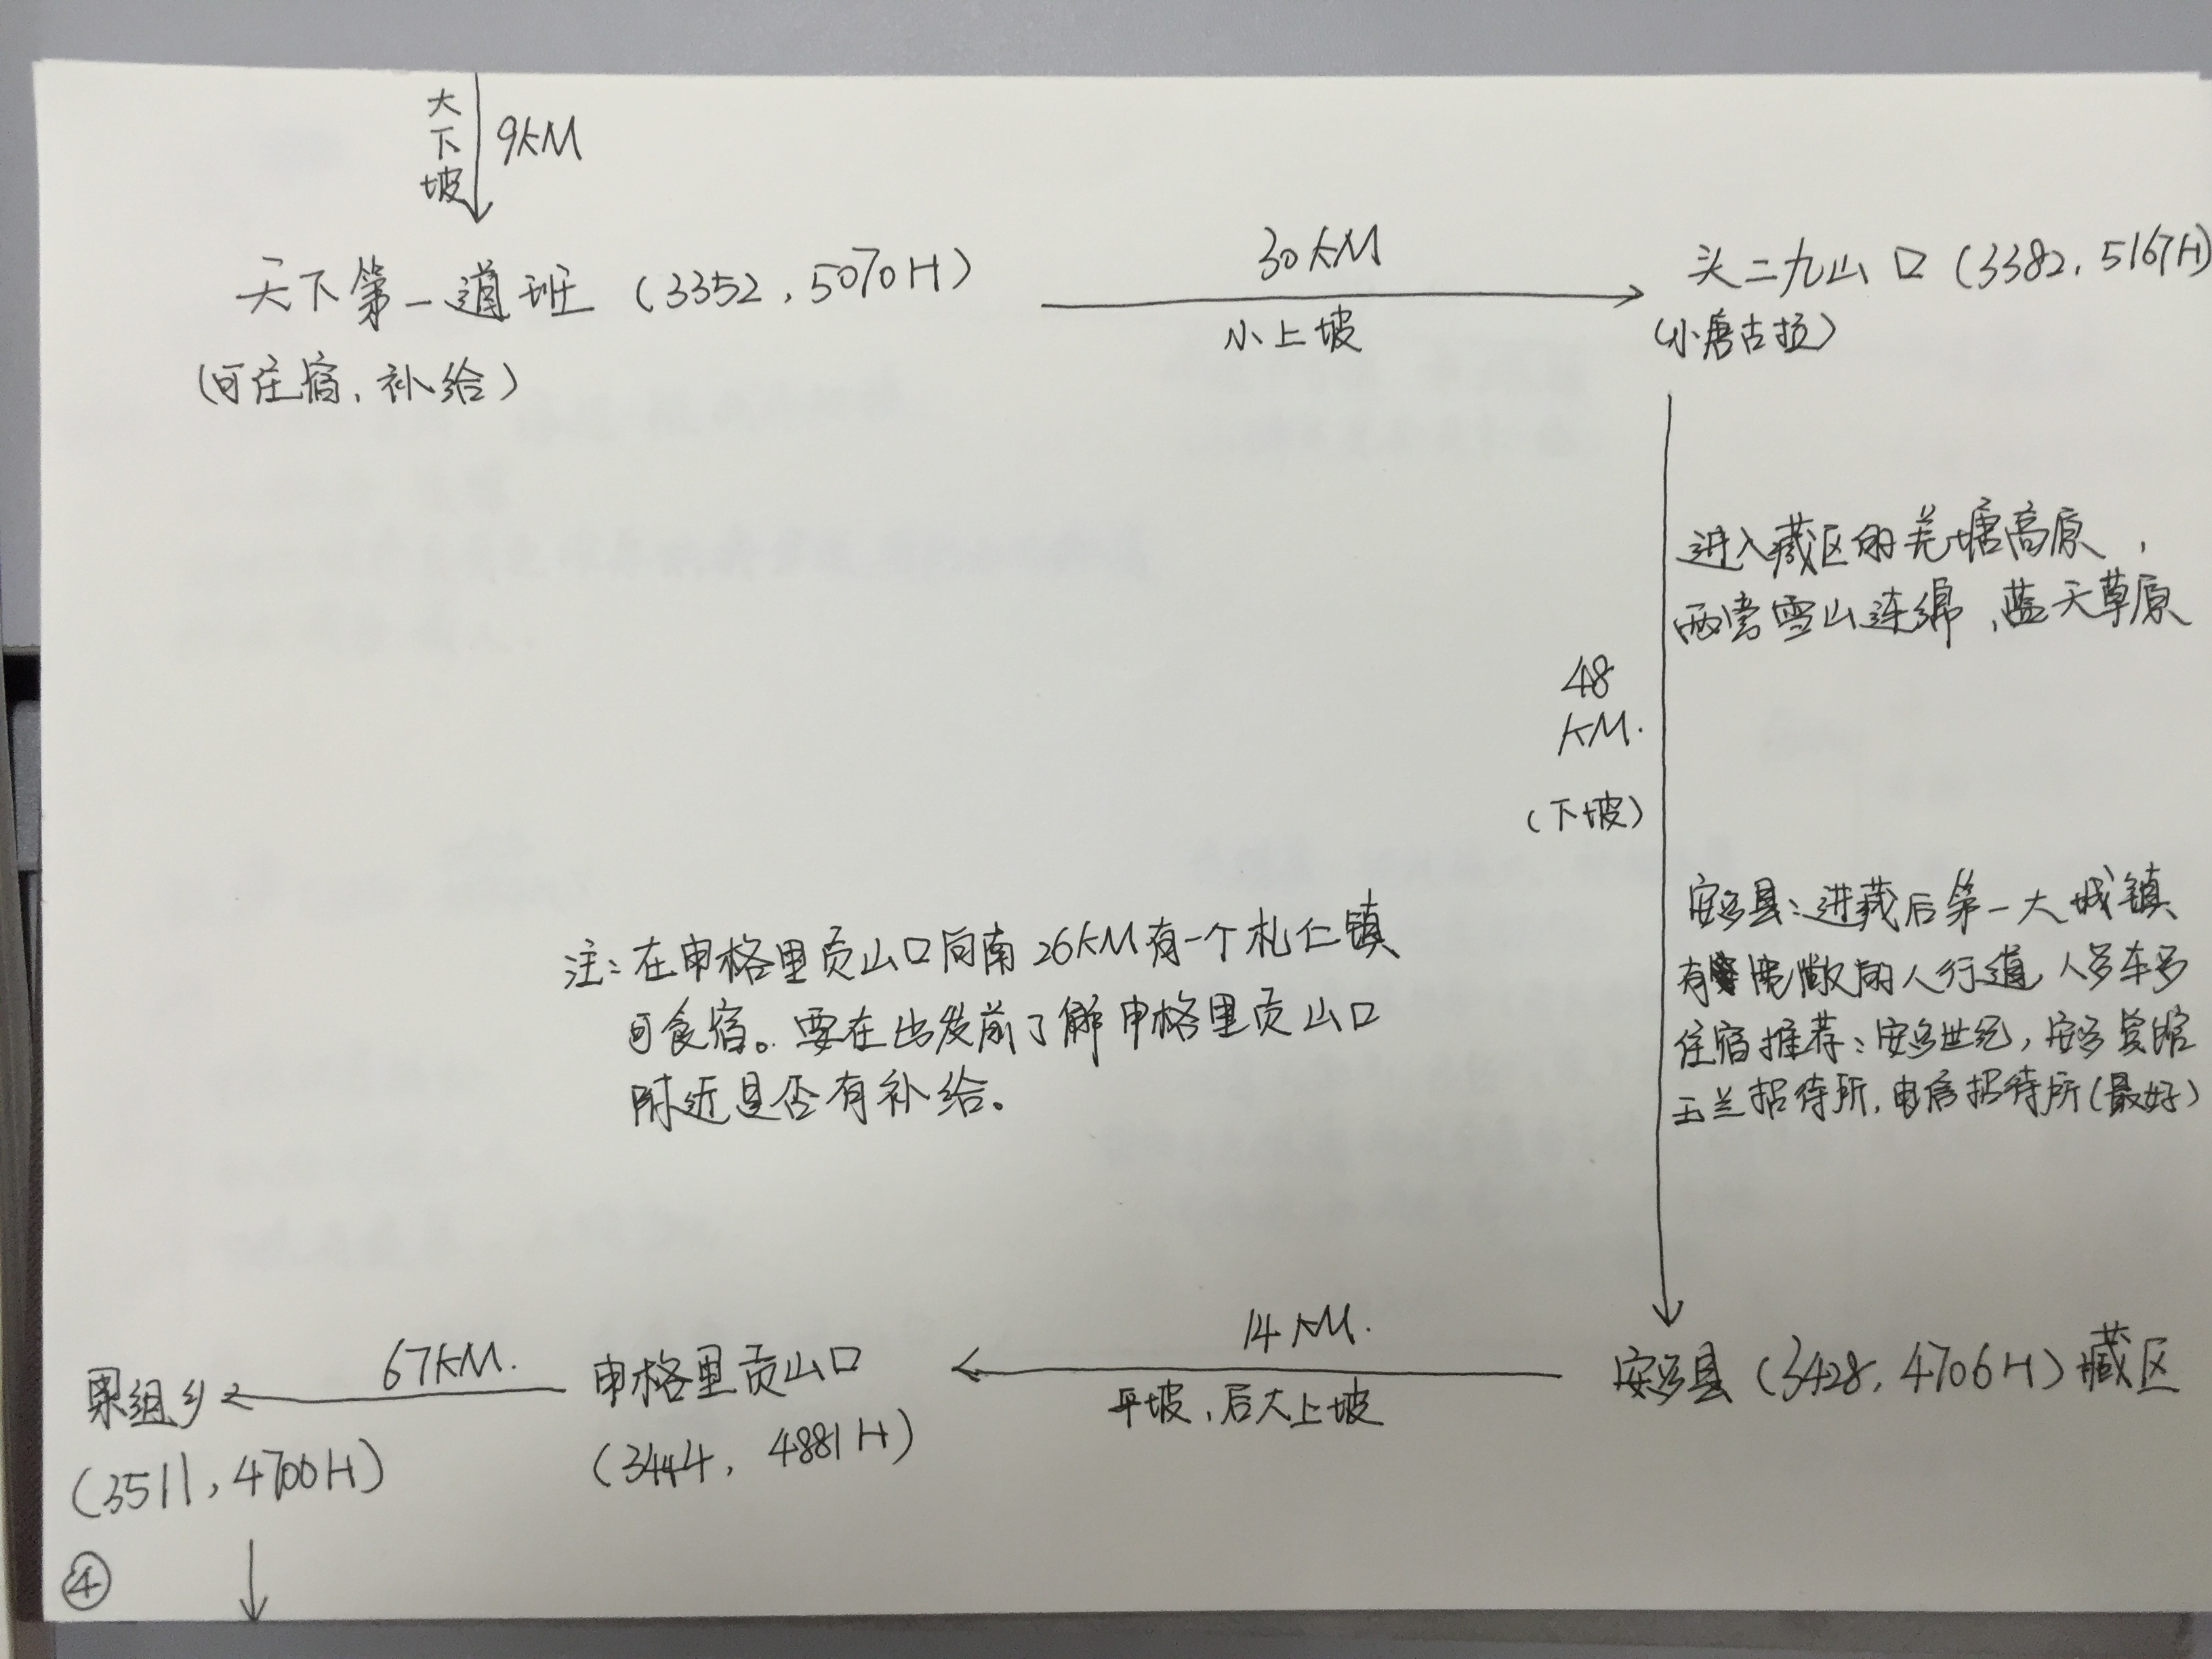 大下坡
9KM
天下第一道班 (3352, 5070H)
(可住宿, 补给)
30KM
小上坡
头二九山口 (3382, 5167H)
(小唐古拉)
进入藏区的羌塘高原,
两旁雪山连绵, 蓝天草原
48
KM.
(下坡)
安多县: 进藏后第一大城镇
的人行道, 人多车多
住宿推荐: 安多世纪, 安多宾馆
玉兰招待所, 电信招待所 (最好)
注: 在申格里贡山口向南26KM有一个札仁镇
可食宿。要在出发前了解申格里贡山口
附近是否有补给。
安多县 (3428, 4706H) 藏区
14KM.
平坡, 后大上坡
申格里贡山口
(3444, 4881H)
67KM.
果组乡
(3511, 4700H)
④